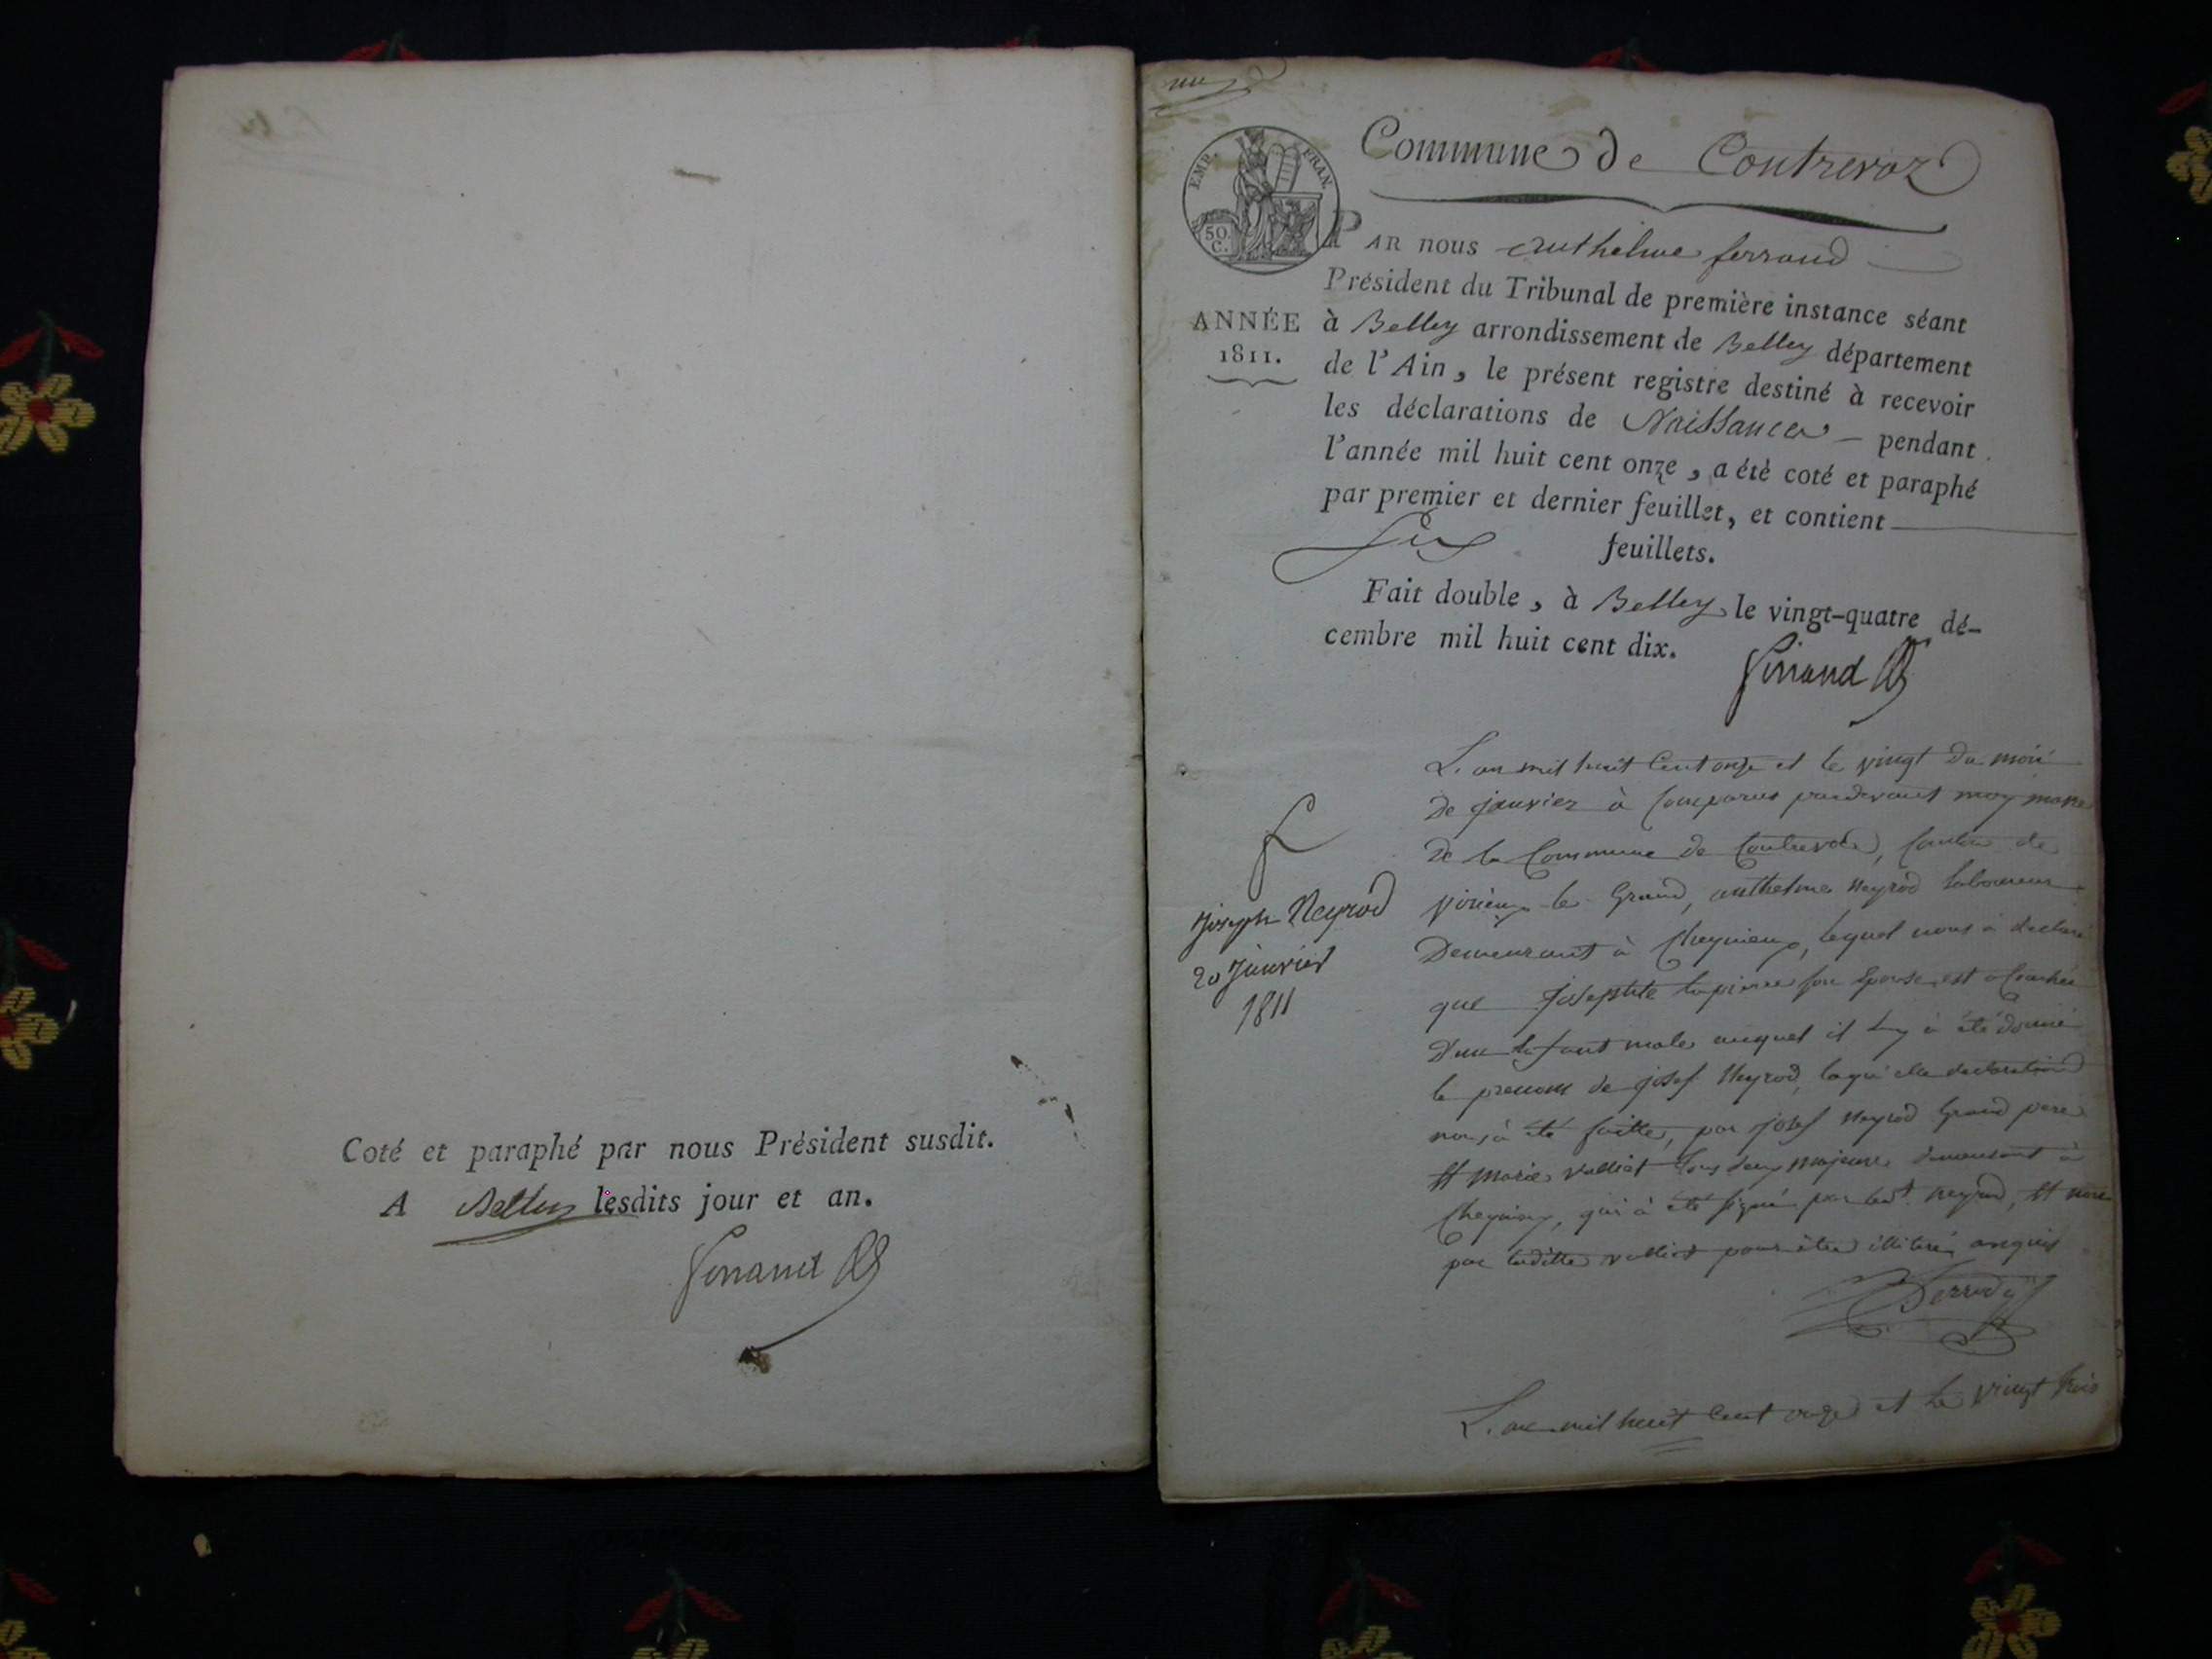 Coté et paraphé par nous Président susdit.
A Belley lesdits jour et an.
Ferrand
Commune de Contrevoz
EMP. FRAN.
50. C.
PAR nous Anthelme ferrand
Président du Tribunal de première instance séant
ANNÉE
1811.
à Belley arrondissement de Belley département
de l'Ain, le présent registre destiné à recevoir
les déclarations de Naissances — pendant
l'année mil huit cent onze, a été coté et paraphé
par premier et dernier feuillet, et contient
Six feuillets.
Fait double, à Belley le vingt-quatre dé-
cembre mil huit cent dix.
Ferrand
Joseph Neyrod
20 Janvier
1811
L'an mil huit Cent onze et le vingt du mois
De janvier à Comparus pardevant moy maire
De la Commune de Contrevoz, Canton de
virieux le Grand, anthelme Neyrod laboureur
Demeurant à Cheignieux, lequel nous à declaré
que Josephte son Epouse est accouchée
D'un Enfant male auquel il luy à été donné
le prenom de josef Neyrod, laquelle declaration
nous à été faitte, par josef Neyrod Grand pere
Et marie valliet tous deux majeurs demeurant à
qui à été signé par led. neyrod, Et non
par laditte valliet pour être illiteré
L'an mil huit Cent onze et le vingt trois